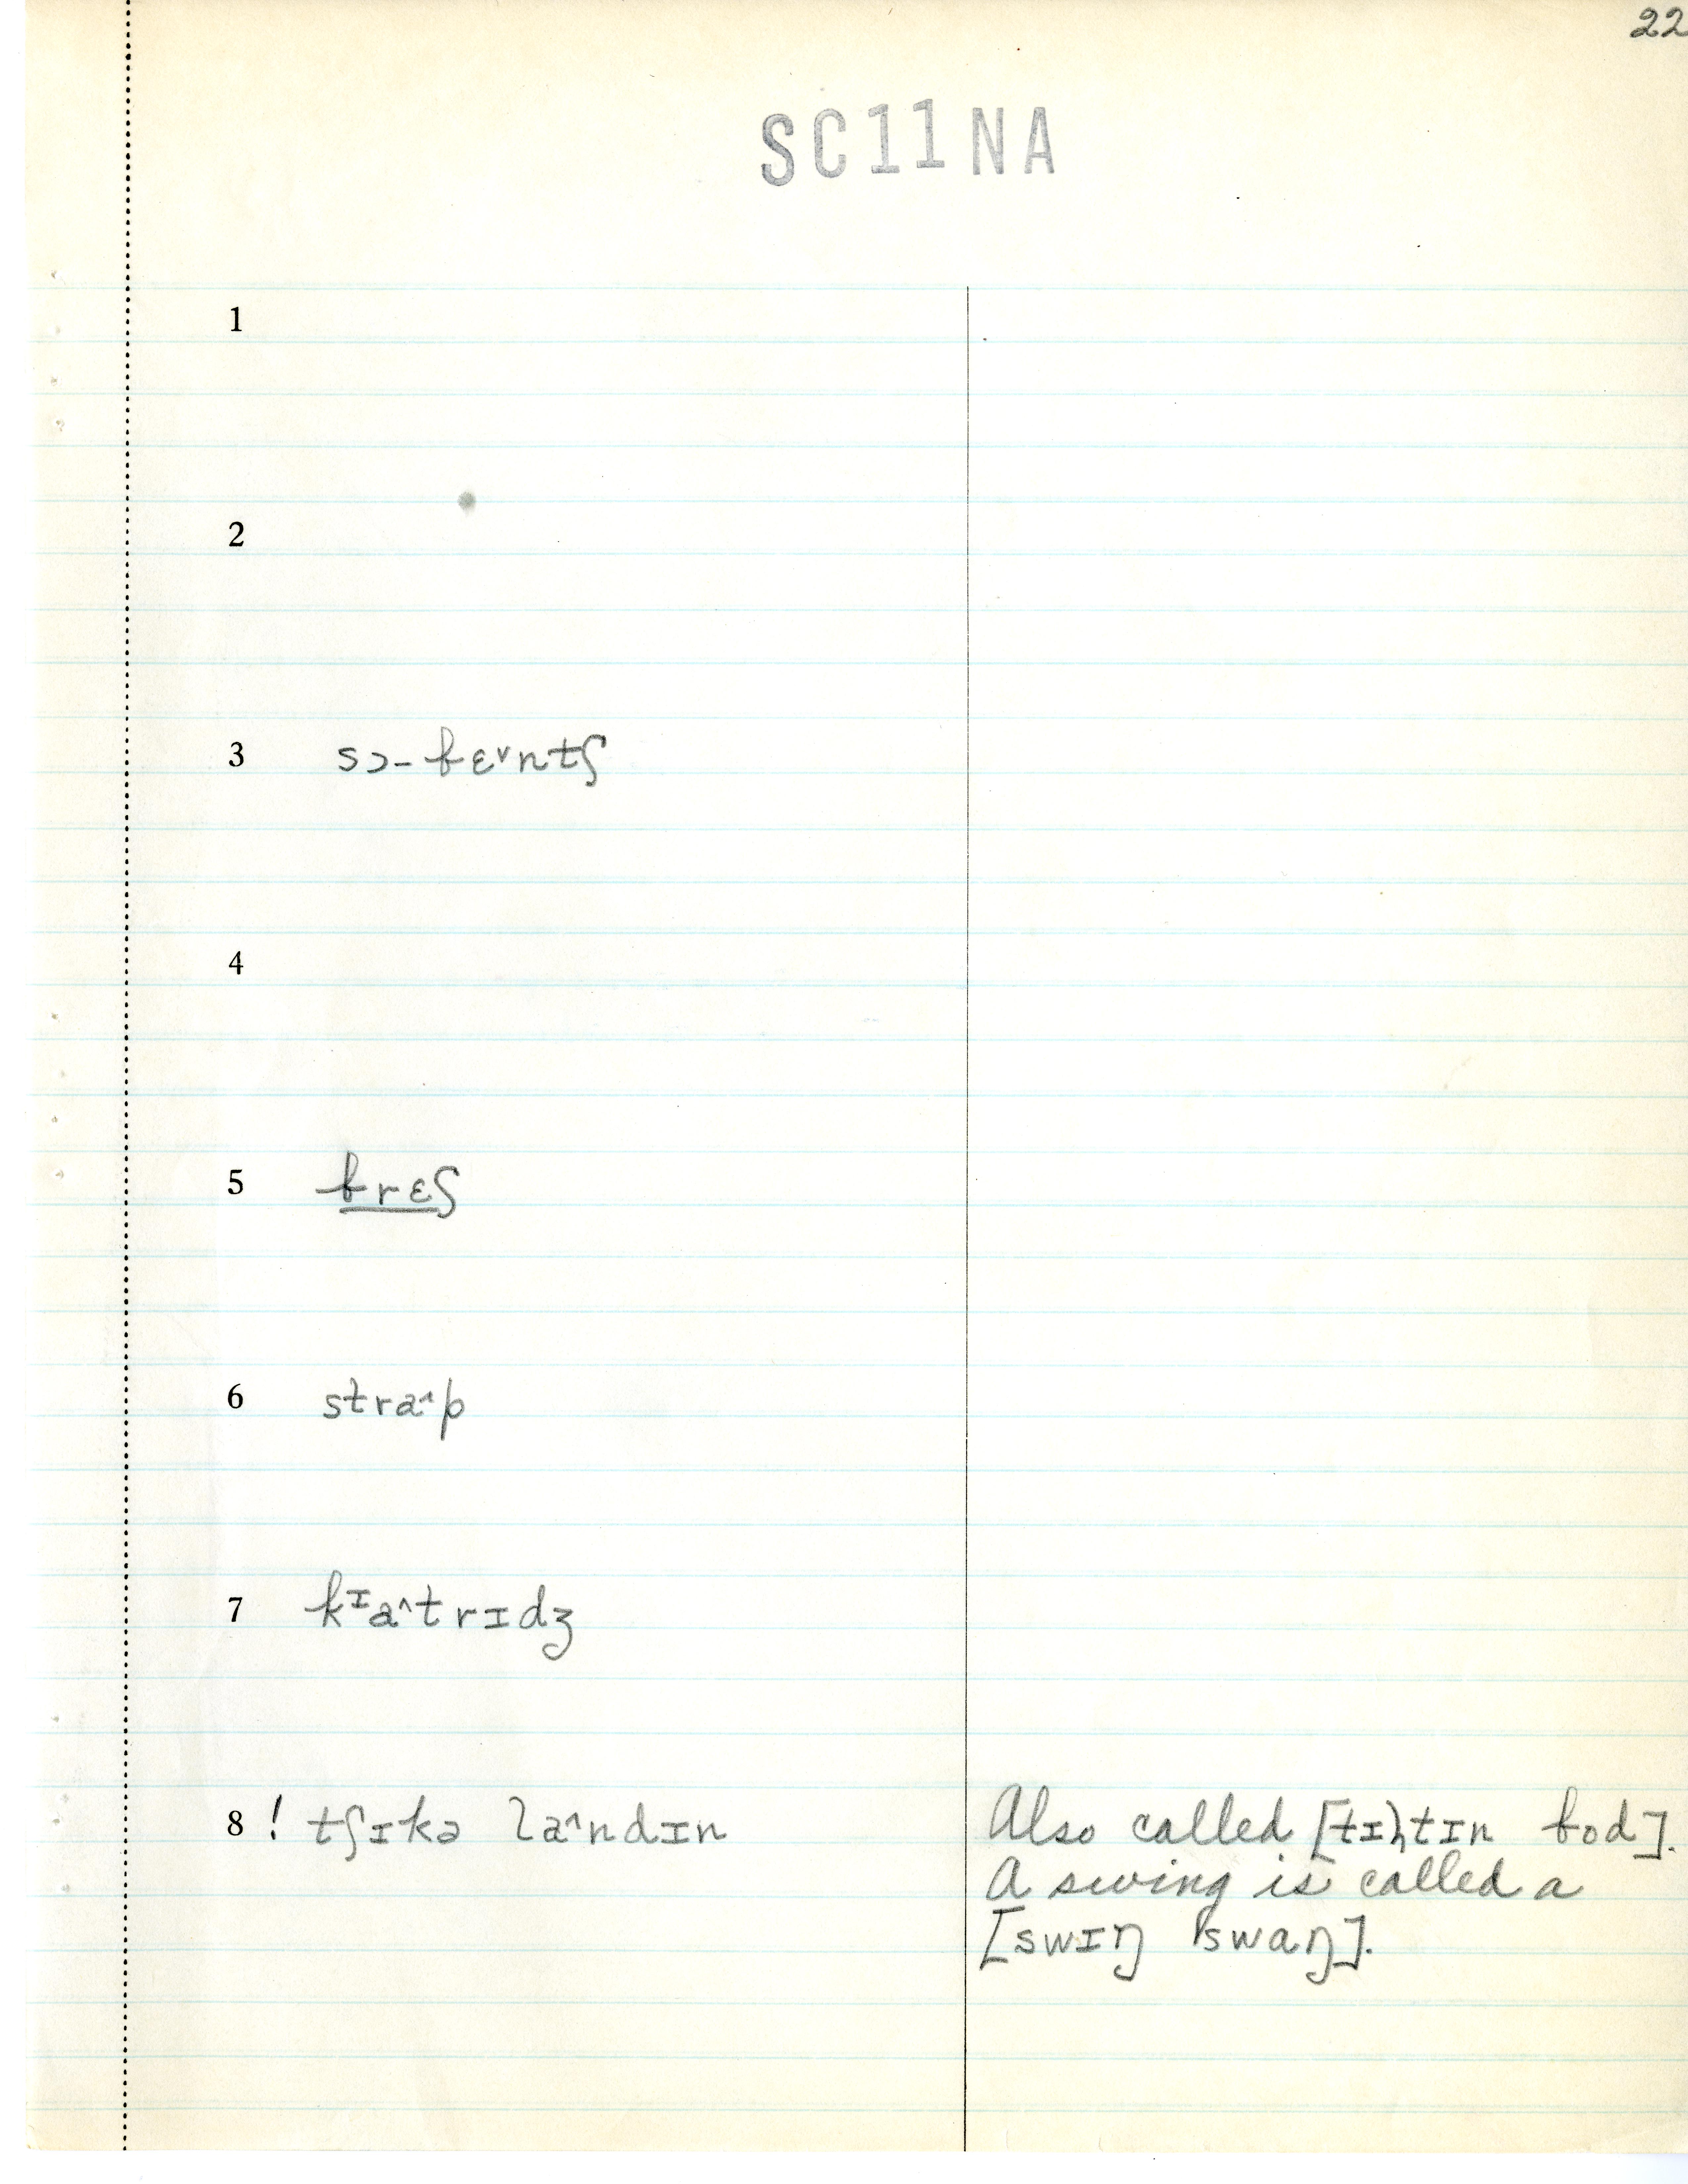 22
SC11NA
1
2
3 sɔ-bɛ˅ntʃ
4
5 brɛʃ
6 stra^p
7 kᶦa^trɪdʒ
8 ! tʃɪkə la^ndɪn
Also called [tɪltɪn bod].
A swing is called a
[swɪŋ swaŋ].